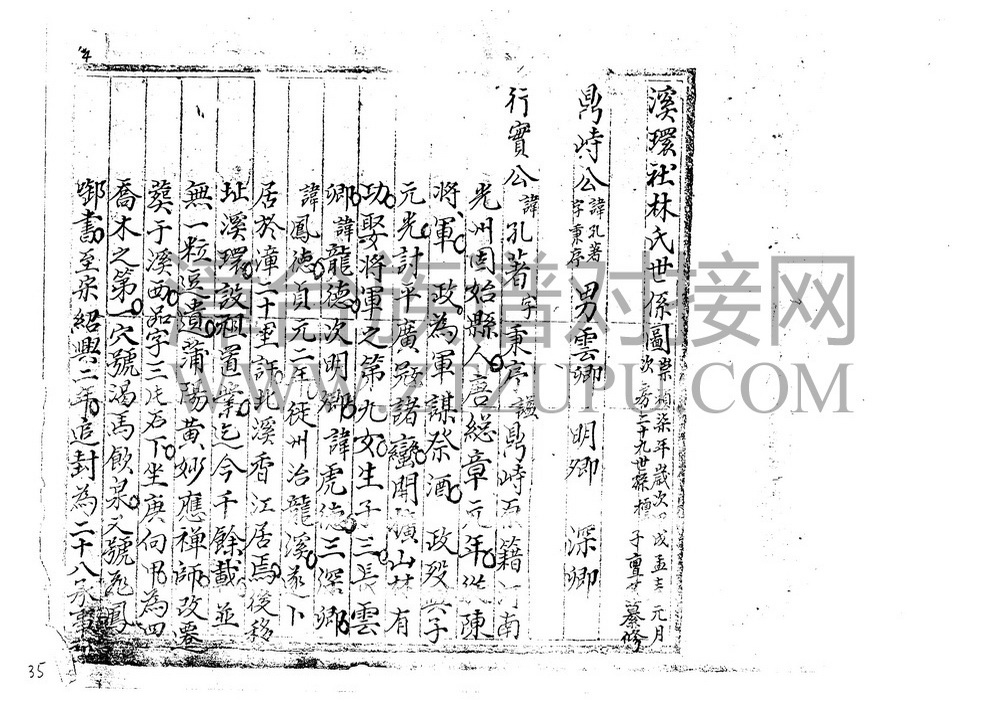 溪環社林氏世係圖
崇禎柒年歲次戌孟春元月
次房二十九世孫子纂修
鼎峙公諱孔著字秉序 男雲卿 明卿 深卿
行實公諱孔著字秉序謚鼎峙原籍河南
光州固始縣人唐總章元年從陳
將軍政為軍謀祭酒政歿與子
元光計平廣冦諸蠻開山林有
功娶將軍之第九女生子三長雲
卿諱龍德次明卿諱虎德三深卿
諱鳳德貞元二年徙州治龍溪遂卜
居於漳二十里許北溪香江居焉後移
址溪環設祖置業迄今千餘載並
無一粒逗遺蒲陽黃妙應禪師改遷
葬于溪西品字三片石下坐庚向甲為四
喬木之第一穴號渴馬飲泉又號飛鳳
啣書至宋紹興二年追封為二十八承事
35
津合族譜对接网
WWW.ZTZUPU.COM